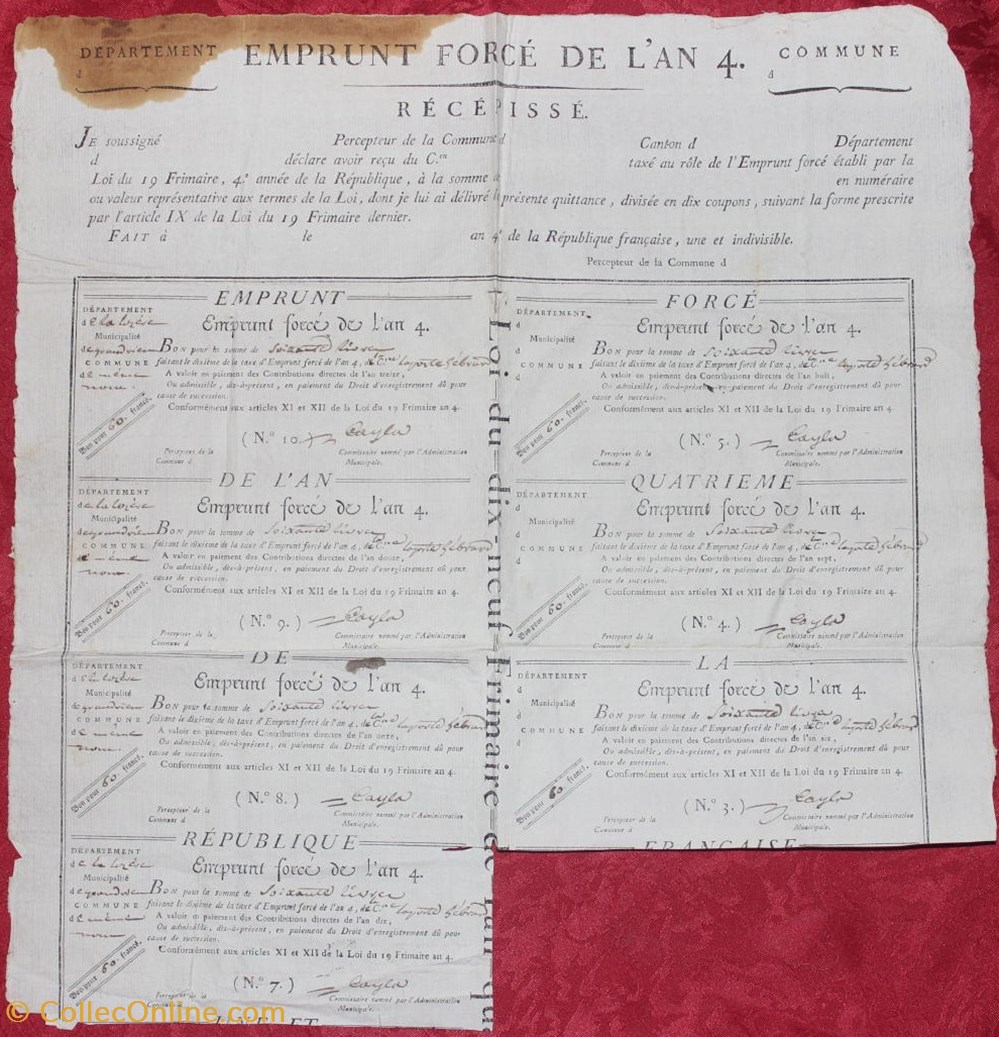 DÉPARTEMENT
d
EMPRUNT FORCÉ DE L'AN 4.
COMMUNE
d
RÉCÉPISSÉ.
JE soussigné Percepteur de la Commune d Canton d Département
d déclare avoir reçu du C.en taxé au rôle de l'Emprunt forcé établi par la
Loi du 19 Frimaire, 4.e année de la République, à la somme d en numéraire
ou valeur représentative aux termes de la Loi, dont je lui ai délivré la présente quittance, divisée en dix coupons, suivant la forme prescrite
par l'article IX de la Loi du 19 Frimaire dernier.
FAIT à le an 4.e de la République française, une et indivisible.
Percepteur de la Commune d
EMPRUNT
DÉPARTEMENT
de la lozère
Municipalité
de grandrieu
COMMUNE
de même
nom.
Bon pour 60. francs.
Emprunt forcé de l'an 4.
BON pour la somme de Soixante livres
faisant le dixième de la taxe d'Emprunt forcé de l'an 4, de
A valoir en paiement des Contributions directes de l'an treize,
Ou admissible, dès-à-présent, en paiement du Droit d'enregistrement dû pour
cause de succession.
Conformément aux articles XI et XII de la Loi du 19 Frimaire an 4.
(N.o 10.) Cayla
Percepteur de la
Commune d
Commissaire nommé par l'Administration
Municipale.
DE L'AN
DÉPARTEMENT
de la lozère
Municipalité
de grandrieu
COMMUNE
de même
nom.
Bon pour 60. francs.
Emprunt forcé de l'an 4.
BON pour la somme de Soixante livres
faisant le dixième de la taxe d'Emprunt forcé de l'an 4, de
A valoir en paiement des Contributions directes de l'an douze,
Ou admissible, dès-à-présent, en paiement du Droit d'enregistrement dû pour
cause de succession.
Conformément aux articles XI et XII de la Loi du 19 Frimaire an 4.
(N.o 9.) Cayla
Percepteur de la
Commune d
Commissaire nommé par l'Administration
Municipale.
DE
DÉPARTEMENT
de la lozère
Municipalité
de grandrieu
COMMUNE
de même
nom.
Bon pour 60. francs.
Emprunt forcé de l'an 4.
BON pour la somme de Soixante livres
faisant le dixième de la taxe d'Emprunt forcé de l'an 4, de
A valoir en paiement des Contributions directes de l'an onze,
Ou admissible, dès-à-présent, en paiement du Droit d'enregistrement dû pour
cause de succession.
Conformément aux articles XI et XII de la Loi du 19 Frimaire an 4.
(N.o 8.) Cayla
Percepteur de la
Commune d
Commissaire nommé par l'Administration
Municipale.
RÉPUBLIQUE
DÉPARTEMENT
de la lozère
Municipalité
de grandrieu
COMMUNE
de même
nom.
Bon pour 60. francs.
Emprunt forcé de l'an 4.
BON pour la somme de Soixante livres
faisant le dixième de la taxe d'Emprunt forcé de l'an 4, de
A valoir en paiement des Contributions directes de l'an dix,
Ou admissible, dès-à-présent, en paiement du Droit d'enregistrement dû pour
cause de succession.
Conformément aux articles XI et XII de la Loi du 19 Frimaire an 4.
(N.o 7.) Cayla
Percepteur de la
Commune d
Commissaire nommé par l'Administration
Municipale.
Loi du dix-neuf Frimaire de l'an qu
FORCÉ
DÉPARTEMENT
d
Municipalité
d
COMMUNE
d
Bon pour 60. francs.
Emprunt forcé de l'an 4.
BON pour la somme de Soixante livres
faisant le dixième de la taxe d'Emprunt forcé de l'an 4, de
A valoir en paiement des Contributions directes de l'an huit,
Ou admissible, dès-à-présent, en paiement du Droit d'enregistrement dû pour
cause de succession.
Conformément aux articles XI et XII de la Loi du 19 Frimaire an 4.
(N.o 5.) Cayla
Percepteur de la
Commune d
Commissaire nommé par l'Administration
Municipale.
QUATRIEME
DÉPARTEMENT
d
Municipalité
d
COMMUNE
d
Bon pour 60. francs.
Emprunt forcé de l'an 4.
BON pour la somme de Soixante livres
faisant le dixième de la taxe d'Emprunt forcé de l'an 4, de
A valoir en paiement des Contributions directes de l'an sept,
Ou admissible, dès-à-présent, en paiement du Droit d'enregistrement dû pour
cause de succession.
Conformément aux articles XI et XII de la Loi du 19 Frimaire an 4.
(N.o 4.) Cayla
Percepteur de la
Commune d
Commissaire nommé par l'Administration
Municipale.
LA
DÉPARTEMENT
d
Municipalité
d
COMMUNE
d
Bon pour 60 francs.
Emprunt forcé de l'an 4.
BON pour la somme de Soixante livres
faisant le dixième de la taxe d'Emprunt forcé de l'an 4, de
A valoir en paiement des Contributions directes de l'an six,
Ou admissible, dès-à-présent, en paiement du Droit d'enregistrement dû pour
cause de succession.
Conformément aux articles XI et XII de la Loi du 19 Frimaire an 4.
(N.o 3.) Cayla
Percepteur de la
Commune d
Commissaire nommé par l'Administration
Municipale.
FRANÇAISE
© CollecOnline.com